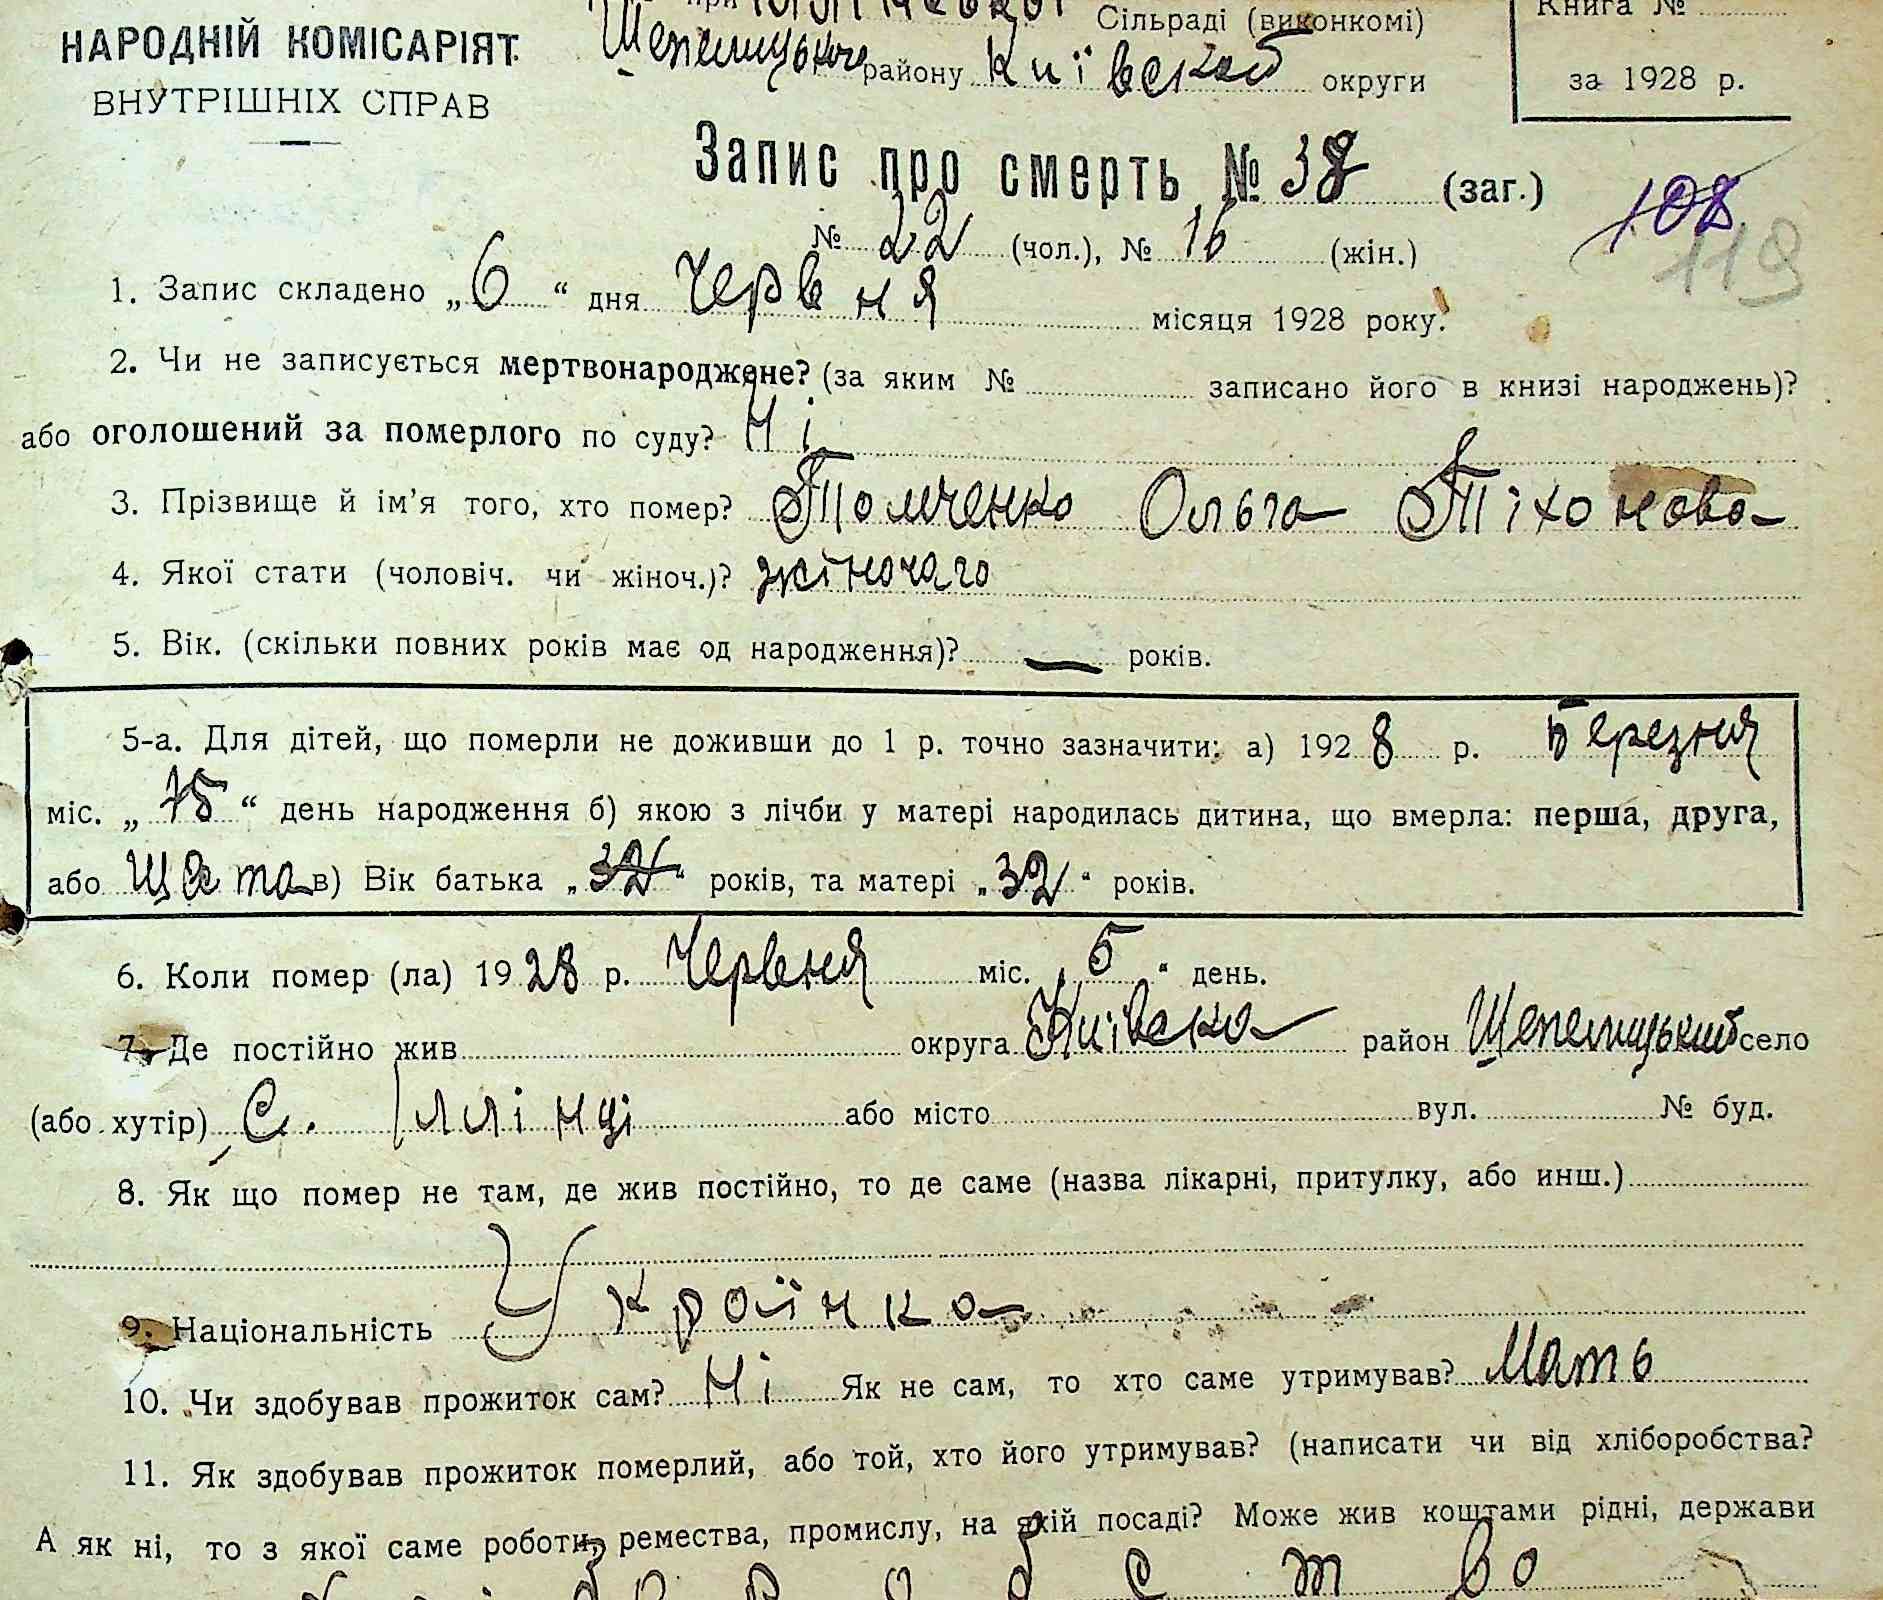 при Іллінської Сільраді (виконкомі)
Книга №
НАРОДНІЙ КОМІСАРІЯТ
Шепелицького району Київской округи
за 1928 р.
ВНУТРІШНІХ СПРАВ
Запис про смерть № 38 (заг.)
108
119
№ 22 (чол.), № 16 (жін.)
1. Запис складено „6“ дня Червня місяця 1928 року.
2. Чи не записується мертвонароджене? (за яким № записано його в книзі народжень)?
або оголошений за померлого по суду? Ні
3. Прізвище й ім'я того, хто помер? Томченко Ольга Тіхонова
4. Якої стати (чоловіч. чи жіноч.)? жіночаго
5. Вік. (скільки повних років має од народження)? — років.
5-а. Для дітей, що померли не доживши до 1 р. точно зазначити: а) 1928 р. Березня
міс. „15“ день народження б) якою з лічби у матері народилась дитина, що вмерла: перша, друга,
або Щата в) Вік батька „32“ років, та матері „32“ років.
6. Коли помер (ла) 1928 р. Червня міс. „5“ день.
7. Де постійно жив округа Київска район Шепелицький село
(або хутір) С. Іллінці або місто вул. № буд.
8. Як що помер не там, де жив постійно, то де саме (назва лікарні, притулку, або инш.)
9. Національність Украінка
10. Чи здобував прожиток сам? Ні Як не сам, то хто саме утримував? Мать
11. Як здобував прожиток померлий, або той, хто його утримував? (написати чи від хліборобства?
А як ні, то з якої саме роботи, ремества, промислу, на якій посаді? Може жив коштами рідні, держави
Хліборобство